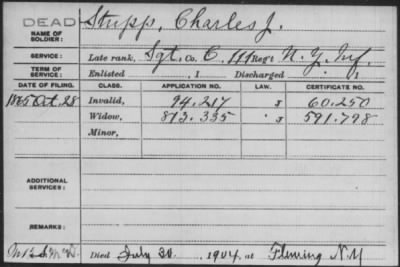 DEAD
NAME OF SOLDIER: Stupp, Charles J.
SERVICE: Late rank, Sgt. Co. C, 111 Reg't N.Y. Inf.
TERM OF SERVICE: Enlisted , 1 Discharged , 1
DATE OF FILING. CLASS. APPLICATION NO. LAW. CERTIFICATE NO.
1865 Oct. 28 Invalid, 94.217 60.250
Widow, 812.335 591.798
Minor,
ADDITIONAL SERVICES:
REMARKS:
Died July 30, 1904, at Fleming N.Y